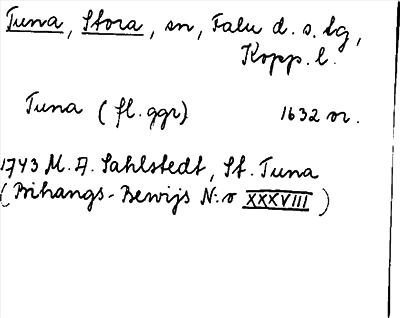 Tuna, Stora, sn, Falu d. s. lg,
Kopp. l.
Tuna (fl. ggr) 1632 or.
1743 M. A. Sahlstedt, St. Tuna
(Bihangs-Bewijs N:o XXXVIII)